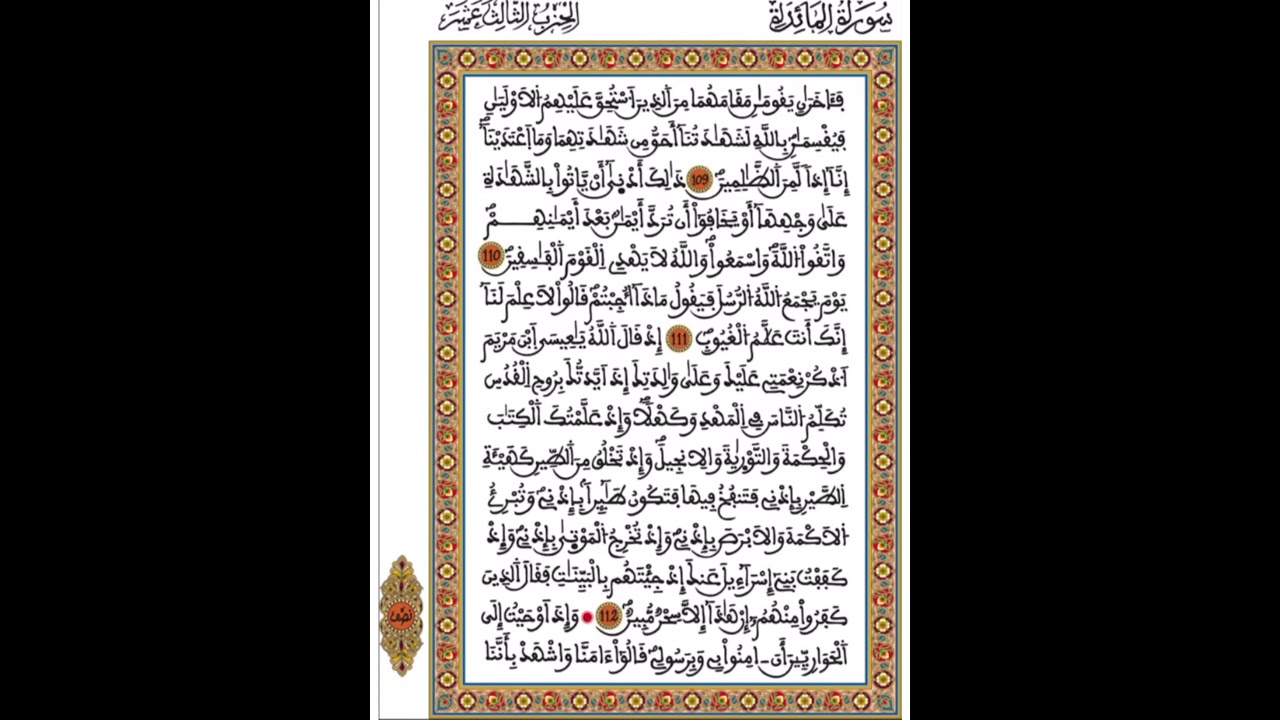 سُورَةُ المَائِدَةِ الحِزْبُ الثَّالِثَ عَشَرَ
فَـَٔاخَرَٰنِ يَقُومَٰنِ مَقَامَهُمَا مِنَ اَ۬لذِينَ اَ۟سْتُحِقَّ عَلَيْهِمُ اُ۬لَاوْلَيَٰنِ
فَيُقْسِمَٰنِ بِاللَّهِ لَشَهَٰدَتُنَآ أَحَقُّ مِن شَهَٰدَتِهِمَا وَمَا اَ۪عْتَدَيْنَآ
إِنَّآ إِذاٗ لَّمِنَ اَ۬لظَّٰلِمِينَۖ 109 ذَٰلِكَ أَدْن۪ىٰٓ أَنْ يَّاتُواْ بِالشَّهَٰدَةِ
عَلَىٰ وَجْهِهَآ أَوْ يَخَافُوٓاْ أَن تُرَدَّ أَيْمَٰنُۢ بَعْدَ أَيْمَٰنِهِمْۖ
وَاتَّقُواْ اُ۬للَّهَ وَاسْمَعُواْۖ وَاللَّهُ لَا يَهْدِے اِ۬لْقَوْمَ اَ۬لْفَٰسِقِينَۖ 110
يَوْمَ يَجْمَعُ اُ۬للَّهُ اُ۬لرُّسُلَ فَيَقُولُ مَاذَآ أُجِبْتُمْۖ قَالُواْ لَا عِلْمَ لَنَآ
إِنَّكَ أَنتَ عَلَّٰمُ اُ۬لْغُيُوبِۖ 111 إِذْ قَالَ اَ۬للَّهُ يَٰعِيسَى اَ۪بْنَ مَرْيَمَ
اَ۟ذْكُرْ نِعْمَتِے عَلَيْكَ وَعَلَىٰ وَٰلِدَتِكَ إِذَ اَيَّدتُّكَ بِرُوحِ اِ۬لْقُدُسِ
تُكَلِّمُ اُ۬لنَّاسَ فِے اِ۬لْمَهْدِ وَكَهْلاٗۖ وَإِذْ عَلَّمْتُكَ اَ۬لْكِتَٰبَ
وَالْحِكْمَةَ وَالتَّوْر۪يٰةَ وَالِانجِيلَۖ وَإِذْ تَخْلُقُ مِنَ اَ۬لطِّينِ كَهَيْـَٔةِ
اِ۬لطَّيْرِ بِإِذْنِے فَتَنفُخُ فِيهَا فَتَكُونُ طَٰٓئِراَۢ بِإِذْنِےۖ وَتُبْرِۓُ
اُ۬لَاكْمَهَ وَالَابْرَصَ بِإِذْنِےۖ وَإِذْ تُخْرِجُ اُ۬لْمَوْت۪ىٰ بِإِذْنِےۖ وَإِذْ
كَفَفْتُ بَنِےٓ إِسْرَآءِيلَ عَنكَ إِذْ جِئْتَهُم بِالْبَيِّنَٰتِ فَقَالَ اَ۬لذِينَ
كَفَرُواْ مِنْهُمُۥٓ إِنْ هَٰذَآ إِلَّا سِحْرٞ مُّبِينٞۖ 112 وَإِذَ اَوْحَيْتُ إِلَى
اَ۬لْحَوَارِيِّـۧنَ أَنَ اٰمِنُواْ بِے وَبِرَسُولِےۖ قَالُوٓاْ ءَامَنَّا وَاشْهَدْ بِأَنَّنَا
نصف